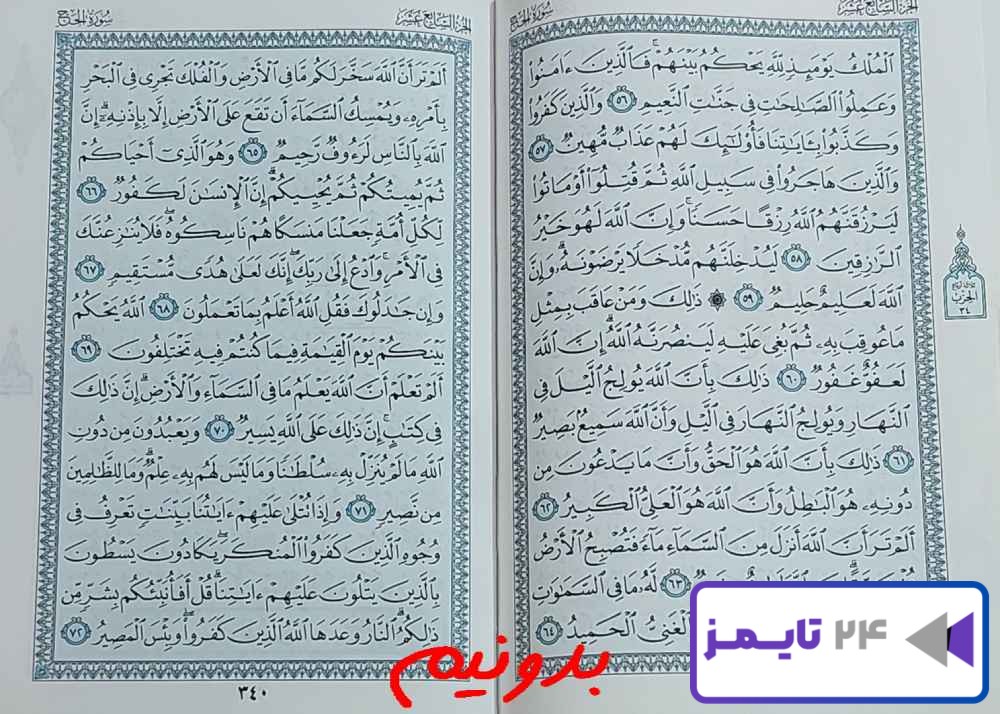 الجزء السابع عشر
سورة الحج
ٱلْمُلْكُ يَوْمَئِذٍ لِّلَّهِ يَحْكُمُ بَيْنَهُمْ ۚ فَٱلَّذِينَ ءَامَنُوا۟
وَعَمِلُوا۟ ٱلصَّـٰلِحَـٰتِ فِى جَنَّـٰتِ ٱلنَّعِيمِ ٥٦ وَٱلَّذِينَ كَفَرُوا۟
وَكَذَّبُوا۟ بِـَٔايَـٰتِنَا فَأُو۟لَـٰٓئِكَ لَهُمْ عَذَابٌ مُّهِينٌ ٥٧
وَٱلَّذِينَ هَاجَرُوا۟ فِى سَبِيلِ ٱللَّهِ ثُمَّ قُتِلُوٓا۟ أَوْ مَاتُوا۟
لَيَرْزُقَنَّهُمُ ٱللَّهُ رِزْقًا حَسَنًا ۚ وَإِنَّ ٱللَّهَ لَهُوَ خَيْرُ
ٱلرَّٰزِقِينَ ٥٨ لَيُدْخِلَنَّهُم مُّدْخَلًا يَرْضَوْنَهُۥ ۗ وَإِنَّ
ٱللَّهَ لَعَلِيمٌ حَلِيمٌ ٥٩ ۞ ذَٰلِكَ وَمَنْ عَاقَبَ بِمِثْلِ
مَا عُوقِبَ بِهِۦ ثُمَّ بُغِىَ عَلَيْهِ لَيَنصُرَنَّهُ ٱللَّهُ ۗ إِنَّ ٱللَّهَ
لَعَفُوٌّ غَفُورٌ ٦٠ ذَٰلِكَ بِأَنَّ ٱللَّهَ يُولِجُ ٱلَّيْلَ فِى
ٱلنَّهَارِ وَيُولِجُ ٱلنَّهَارَ فِى ٱلَّيْلِ وَأَنَّ ٱللَّهَ سَمِيعٌۢ بَصِيرٌ
٦١ ذَٰلِكَ بِأَنَّ ٱللَّهَ هُوَ ٱلْحَقُّ وَأَنَّ مَا يَدْعُونَ مِن
دُونِهِۦ هُوَ ٱلْبَـٰطِلُ وَأَنَّ ٱللَّهَ هُوَ ٱلْعَلِىُّ ٱلْكَبِيرُ ٦٢
أَلَمْ تَرَ أَنَّ ٱللَّهَ أَنزَلَ مِنَ ٱلسَّمَآءِ مَآءً فَتُصْبِحُ ٱلْأَرْضُ
٦٣ لَّهُۥ مَا فِى ٱلسَّمَـٰوَٰتِ
ٱلْغَنِىُّ ٱلْحَمِيدُ ٦٤
الحزب
٣٤
الجزء السابع عشر
سورة الحج
أَلَمْ تَرَ أَنَّ ٱللَّهَ سَخَّرَ لَكُم مَّا فِى ٱلْأَرْضِ وَٱلْفُلْكَ تَجْرِى فِى ٱلْبَحْرِ
بِأَمْرِهِۦ وَيُمْسِكُ ٱلسَّمَآءَ أَن تَقَعَ عَلَى ٱلْأَرْضِ إِلَّا بِإِذْنِهِۦٓ ۗ إِنَّ
ٱللَّهَ بِٱلنَّاسِ لَرَءُوفٌ رَّحِيمٌ ٦٥ وَهُوَ ٱلَّذِىٓ أَحْيَاكُمْ
ثُمَّ يُمِيتُكُمْ ثُمَّ يُحْيِيكُمْ ۗ إِنَّ ٱلْإِنسَـٰنَ لَكَفُورٌ ٦٦
لِّكُلِّ أُمَّةٍ جَعَلْنَا مَنسَكًا هُمْ نَاسِكُوهُ ۖ فَلَا يُنَـٰزِعُنَّكَ
فِى ٱلْأَمْرِ ۚ وَٱدْعُ إِلَىٰ رَبِّكَ ۖ إِنَّكَ لَعَلَىٰ هُدًى مُّسْتَقِيمٍ ٦٧
وَإِن جَـٰدَلُوكَ فَقُلِ ٱللَّهُ أَعْلَمُ بِمَا تَعْمَلُونَ ٦٨ ٱللَّهُ يَحْكُمُ
بَيْنَكُمْ يَوْمَ ٱلْقِيَـٰمَةِ فِيمَا كُنتُمْ فِيهِ تَخْتَلِفُونَ ٦٩
أَلَمْ تَعْلَمْ أَنَّ ٱللَّهَ يَعْلَمُ مَا فِى ٱلسَّمَآءِ وَٱلْأَرْضِ ۗ إِنَّ ذَٰلِكَ
فِى كِتَـٰبٍ ۚ إِنَّ ذَٰلِكَ عَلَى ٱللَّهِ يَسِيرٌ ٧٠ وَيَعْبُدُونَ مِن دُونِ
ٱللَّهِ مَا لَمْ يُنَزِّلْ بِهِۦ سُلْطَـٰنًا وَمَا لَيْسَ لَهُم بِهِۦ عِلْمٌ ۗ وَمَا لِلظَّـٰلِمِينَ
مِن نَّصِيرٍ ٧١ وَإِذَا تُتْلَىٰ عَلَيْهِمْ ءَايَـٰتُنَا بَيِّنَـٰتٍ تَعْرِفُ فِى
وُجُوهِ ٱلَّذِينَ كَفَرُوا۟ ٱلْمُنكَرَ ۖ يَكَادُونَ يَسْطُونَ
بِٱلَّذِينَ يَتْلُونَ عَلَيْهِمْ ءَايَـٰتِنَا ۗ قُلْ أَفَأُنَبِّئُكُم بِشَرٍّ مِّن
ذَٰلِكُمُ ۗ ٱلنَّارُ وَعَدَهَا ٱللَّهُ ٱلَّذِينَ كَفَرُوا۟ ۖ وَبِئْسَ ٱلْمَصِيرُ ٧٢
٣٤٠
بدونیم
۲۴ تایمز